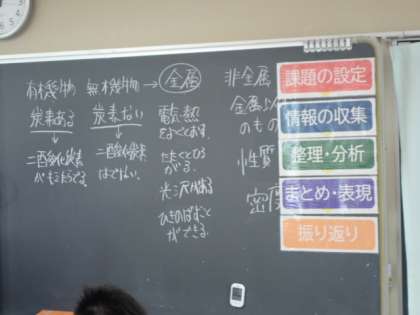 有機物
炭素ある
↓
二酸化炭素
がもえてでる。
無機物 → 金属
炭素ない
↓
二酸化炭素
はでない。
電気 熱
をよくとおす。
たたくとひろ
がる。
光沢がある
ひきのばすこと
ができる。
非金属
金属以外
のもの
性質
密度
課題の設定
情報の収集
整理・分析
まとめ・表現
振り返り